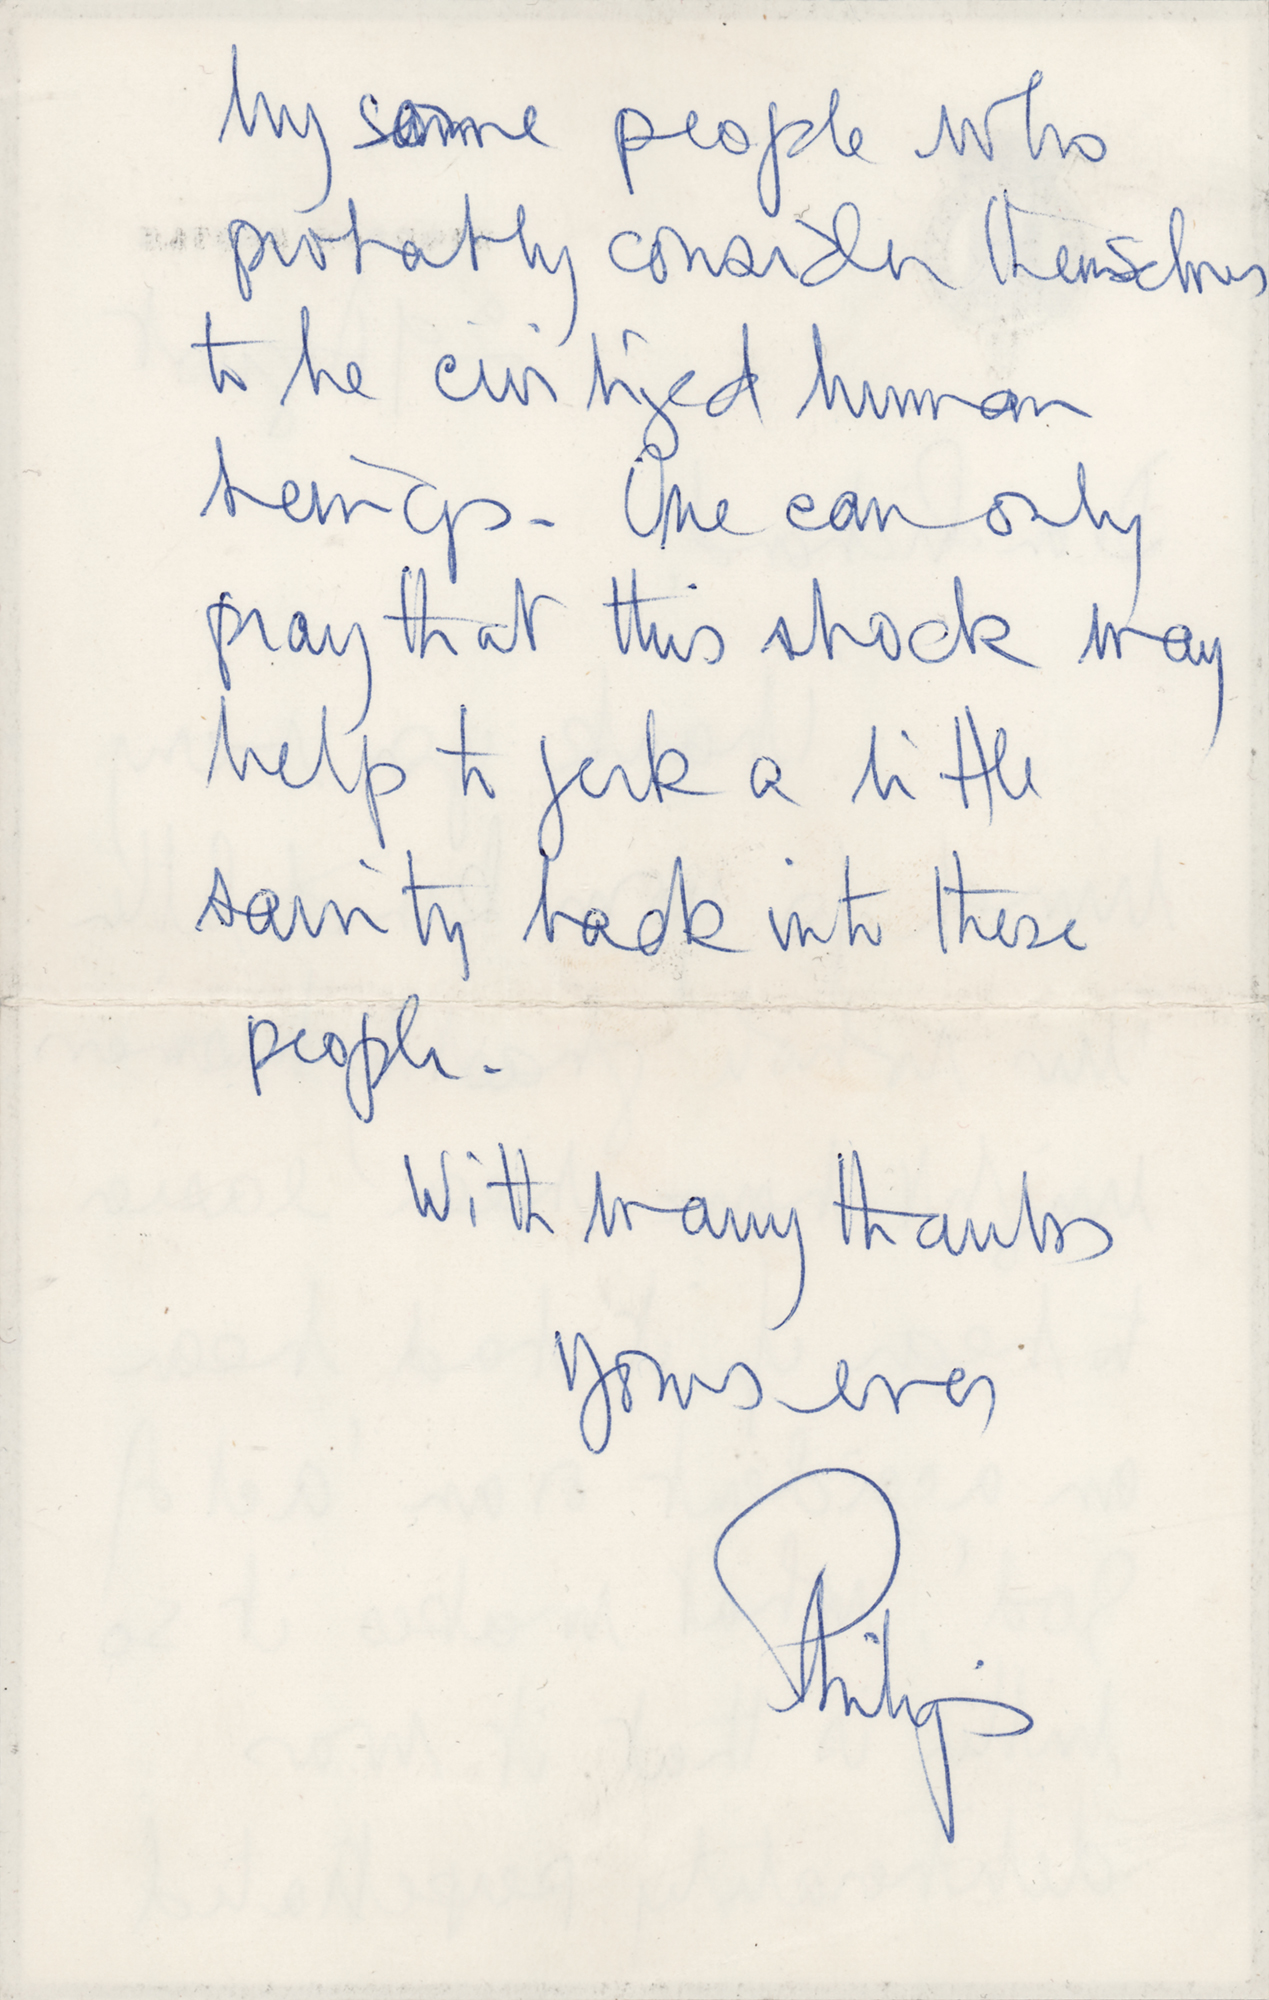 by some people who
probably consider themselves
to be civilized human
beings. One can only
pray that this shock may
help to jerk a little
sanity back into these
people.
With many thanks
Yours ever
Philip